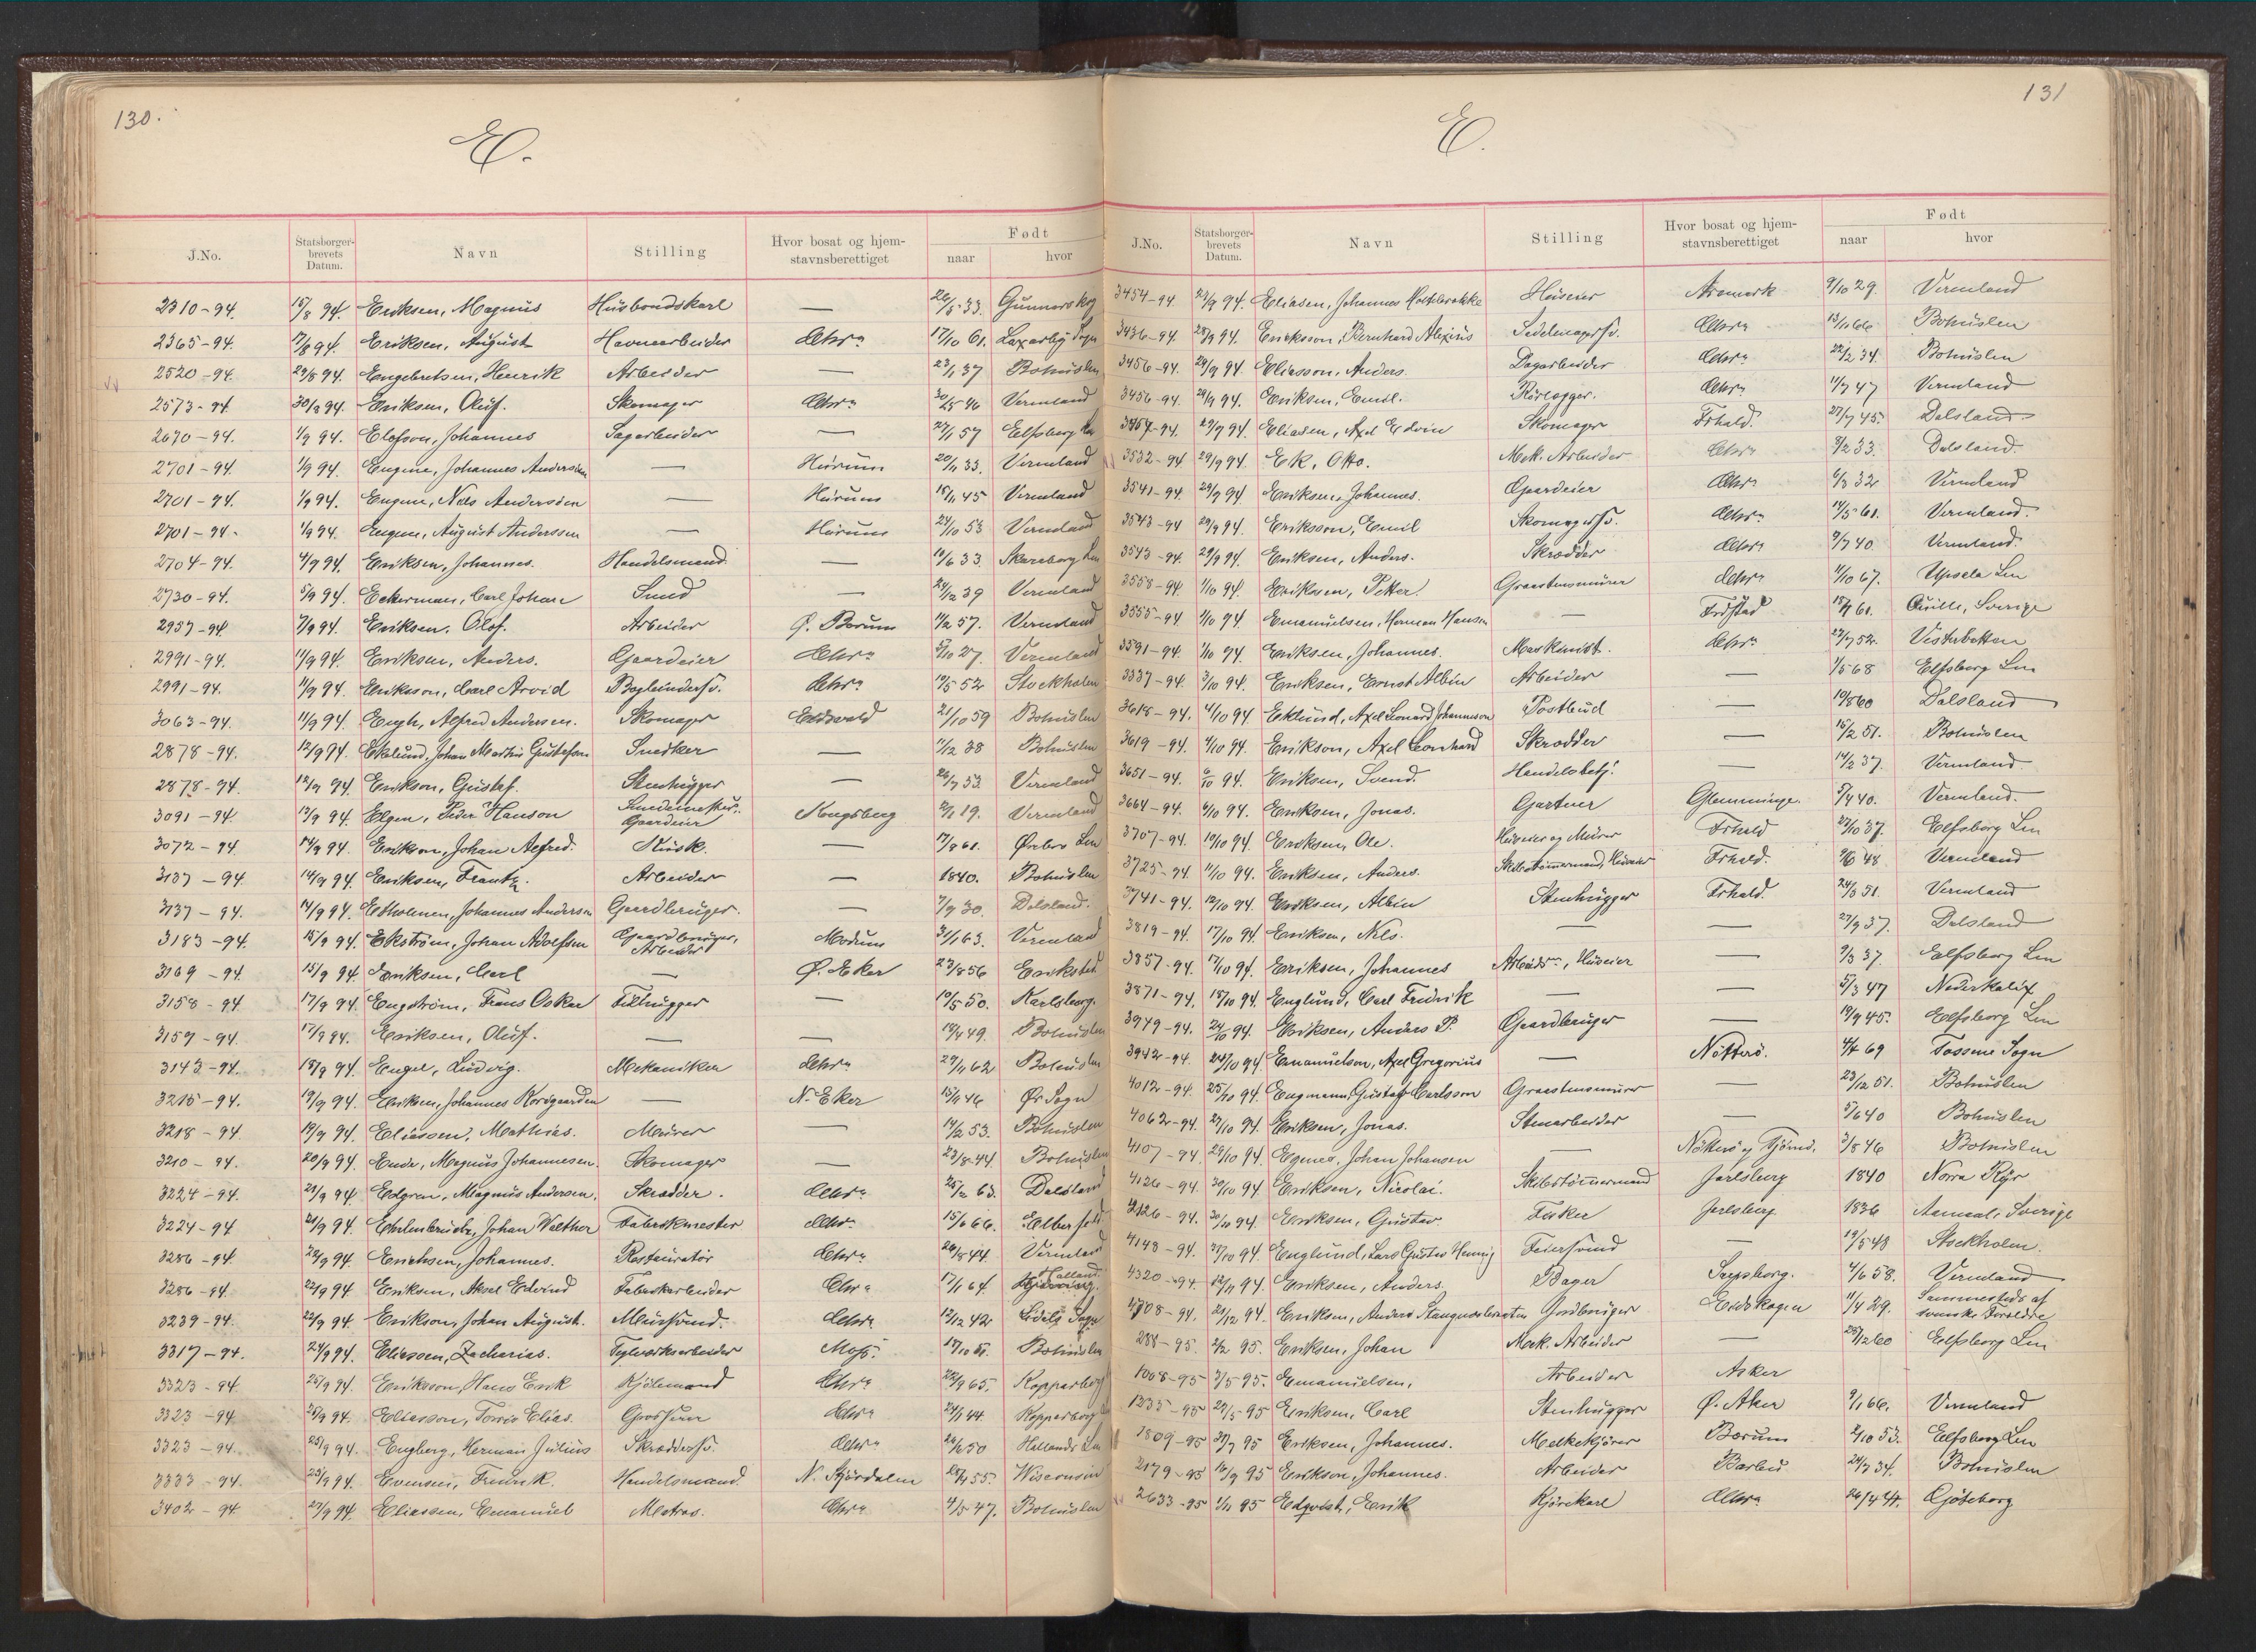 130.
E.
J.No. Statsborger-brevets Datum. Navn Stilling Hvor bosat og hjem-stavnsberettiget Født naar hvor
2310-94. 15/8 94. Eriksen, Magnus Husbondskarl — 26/5 33. Gunnarskog
2365-94. 17/8 94. Eriksen, August Havnearbeider Chra 17/10 61. Laxarby Sogn
2520-94. 29/8 94. Engebretsen, Henrik Arbeider — 23/1 37 Bohuslen
2573-94 30/8 94. Eriksen, Oluf. Skomager Chra 30/5 46 Vermland
2670-94. 1/9 94. Elofson, Johannes Sagarbeider — 27/1 57 Elfsborg Len
2701-94 1/9 94. Engene, Johannes Andersen — Hurum 20/11 33. Vermland
2701-94. 1/9 94. Engene, Nils Anderssen — Hurum 15/11 45 Vermland
2701-94. 1/9 94. Engene, August Anderssen — Hurum 24/10 53 Vermland
2704-94. 4/9 94. Eriksen, Johannes. Handelsmand. — 10/6 33. Skaraborg Len
2730-94. 5/9 94. Eckerman, Carl Johan Smed — 24/12 39 Vermland
2957-94 7/9 94. Eriksen, Olof. Arbeider Ø. Bærum 11/2 57. Vermland
2991-94. 11/9 94. Eriksen, Anders. Gaardeier Chra 5/10 27. Vermland
2991-94. 11/9 94. Eriksson, Carl Arvid Bogbindersv. Chra 19/5 52 Stockholm
3063-94. 11/9 94. Engh, Alfred Andersen. Skomager Eidsvold 21/10 59 Bohuslen
2878-94. 12/9 94. Ekelund, Johan Martin Gustafson Snedker — 11/12 38 Bohuslen
2878-94. 12/9 94. Erikson, Gustaf. Stenhugger — 26/7 53. Vermland
3091-94 13/9 94. Elgen, Peder Hanson Gaardeier Kongsberg 2/1 19. Vermland
3072-94 14/9 94. Erikson, Johan Alfred. Kusk. — 17/8 61. Ørebro Len
3137-94 14/9 94. Eriksen, Frantz. Arbeider — 1840. Bohuslen
3137-94. 14/9 94. Johannes Andersen Gaardbruger. — 7/9 30. Dalsland.
3183-94. 15/9 94. Ekström, Johan Adolfsen Gaardbruger, Arbeider Modum 31/1 63. Vermland
3169-94. 15/9 94 Eriksen, Carl — Ø. Eker 23/8 56
3158-94. 17/9 94. Engström, Frans Oskar Filhugger — 10/5 50. Karlsborg.
3159-94. 17/9 94. Eriksen, Oluf. — — 19/4 49. Bohuslen
3143-94. 18/9 94. Engel, Ludvig. Mekaniker Chra 29/11 62 Bohuslen
3215-94. 19/9 94. Eriksen, Johannes Korsgaarden — N. Eker 15/1 46 Ør Sogn
3218-94. 19/9 94. Eliassen, Mathias. Murer — 14/2 53. Bohuslen
3210-94. 20/9 94. Ende, Magnus Johannesen. Skomager — 23/8 44. Bohuslen
3224-94. 21/9 94. Edgren, Magnus Andersen. Skrædder. Chra 25/12 63. Dalsland
3224-94 21/9 94. Johan Walther Fabrikmester Chra 15/6 66. Elberfeld
3286-94. 22/9 94. Erichsen, Johannes. Restauratør Chra 20/8 44. Vermland
3286-94. 22/9 94 Eriksen, Aksel Edvind Fabrikarbeider Chra 17/1 64. Halland.
3239-94. 22/9 94. Erikson, Johan August. Mursvend. Chra 12/12 42 Ödels Sogn
3317-94. 24/9 94. Eliassen, Zacharias. Teglværksarbeider Moss. 17/10 51. Bohuslen
3323-94. 25/9 94. Eriksson, Hans Erik Kjølemand Chra 22/9 65. Kopparberg
3323-94 25/9 94. Eliasson, Torris Elias. Grosserer Chra 24/1 44. Kopparberg
3323-94. 25/9 94. Engberg, Herman Julius Skræddersv. Chra 26/6 50 Hallands Len
3333-94. 25/9 94. Evensen, Fredrik. Handelsmand. N. Stjørdalen 28/4 55. Wisconsin
3402-94. 27/9 94. Eliassen, Emanuel Matros. Chra 4/5 47. Bohuslen
131
E.
J.No. Statsborger-brevets Datum. Navn Stilling Hvor bosat og hjem-stavnsberettiget Født naar hvor
3454-94. 27/9 94. Eliasen, Johannes Holtebrække Huseier Aremark 9/10 29. Vermland
3436-94. 28/9 94. Ericksson, Bernhard Alexius Sadelmagersv. Chra 13/11 66 Bohuslen
3456-94. 28/9 94 Eliasson, Anders. Dagarbeider Chra 22/2 34. Bohuslen
3456-94. 28/9 94. Eriksen, Emil. Rørlægger. Chra 11/7 47 Vermland
3454-94. 29/9 94. Eliasen, Axel Edvin Skomager Frhald. 27/7 45. Dalsland
3532-94 29/9 94. Ek, Otto. Mek. Arbeider Chra 8/2 33. Dalsland.
3541-94. 29/9 94 Eriksen, Johannes. Gaardeier Chra 6/3 32 Vermland
3543-94 29/9 94. Eriksson, Emil Skomagersv. Chra 14/5 61. Vermland.
3543-94. 29/9 94. Eriksen, Anders. Skrædder Chra 9/7 40 Vermland.
3558-94. 1/10 94. Eriksson, Petter. Graastensmurer Chra 11/10 67. Upsala Len
3555-94 1/10 94. Emanuelsen, Herman Hansen — Frdstad 18/7 61. Quille, Sverige
3591-94. 1/10 94. Eriksen, Johannes. Maskinist. Chra 27/7 52. Vesterbotten
3337-94. 3/10 94. Eriksen, Ernst Albin Arbeider — 1/5 68 Elfsborg Len
3618-94. 4/10 94. Eklund, Axel Leonard Johannesson Postbud — 19/8 60 Dalsland
3619-94. 4/10 94. Erikson, Axel Leonhard Skrædder — 16/2 51. Bohuslen
3651-94. 6/10 94. Eriksen, Svend. Handelsbetj. — 14/2 37. Vermland
3664-94. 6/10 94. Eriksen, Jonas. Gartner Glemminge. 3/4 40. Vermland.
3707-94. 10/10 94. Eriksen, Ole. Huseier og Murer Frhald 27/10 37. Elfsborg Len
3725-94 11/10 94. Eriksen, Anders. Skibstømmermand, Huseier Frhald. 9/6 48. Vermland
3741-94. 12/10 94. Eriksen, Albin Stenhugger Frhald. 24/3 51. Vermland
3819-94. 17/10 94. Eriksen, Nils. — — 27/9 37. Dalsland
3857-94. 17/10 94. Eriksen, Johannes Arbeider, Huseier — 9/3 37. Elfsborg Len
3871-94. 18/10 94. Englund, Carl Fredrik — — 5/3 47 Nederkalix
3949-94. 24/10 94. Eriksen, Anders P. Gaardbruger — 19/9 45. Elfsborg Len
3942-94. 24/10 94. Emanuelson, Axel Gregorius — Nøtterø. 4/4 69 Tossene Sogn
4012-94. 25/10 94. Engmann, Gustaf Carlsson Graastensmurer — 23/12 51. Bohuslen
4062-94. 27/10 94. Eriksen, Jonas. Stenarbeider — 5/6 40 Bohuslen
4107-94 29/10 94. Egenes, Johan Johansen — Nøtterø og Tjømø. 3/8 46 Bohuslen
4126-94. 30/10 94. Eriksen, Nicolai. Skibstømmermand Jarlsberg 1840 Norra Ryr
4126-94. 30/10 94. Eriksen, Gustav Fisker Jarlsberg 1836 Aamaal, Sverige
4148-94. 31/10 94. Englund, Lars Gustav Henrig Feiersvend — 19/5 48 Stockholm.
4320-94 12/11 94. Eriksen, Anders. Bager Sarpsborg. 4/6 58. Vermland
4708-94. 21/12 94. Eriksen, Anders Stangnesbraaten Jordbruger Eidskogen 11/4 29. Sammesteds af svenske Forældre
258-95. 2/2 95. Eriksen, Johan Mek. Arbeider — 28/12 60 Elfsborg Len
1008-95 3/5 95. Emanuelsen, Arbeider Asker
1235-95 27/5 95 Eriksen, Carl Stenhugger Ø. Aker 9/1 66. Vermland
1809-95 31/7 95 Eriksen, Johannes. Melkekjører Bærum 2/10 53. Elfsborg Len
2179-95 16/9 95 Erikson, Johannes. Arbeider Barbu 24/7 34. Bohuslen
2633-95 1/11 95 Edqvist, Erik Kjørekarl Chra 26/4 44. Gjøteborg